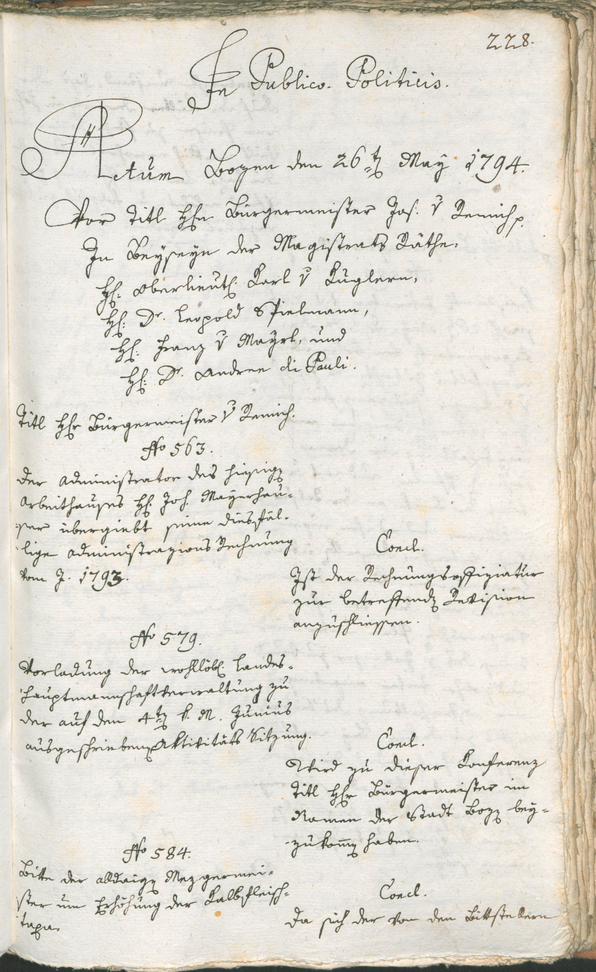 228.
In Publico. Politicis.
Actum Bozen den 26t May 1794.
Vor Titl Hhn Bürgermeister Jos. v Remich p.
In Beyseyn der Magistrats Räthe,
Hh: Oberlieuth. Karl v Kuglern,
Hh: Dr. Leopold Spielmann,
Hh: Franz v Mayrl, und
Hh: Dr. Andree di Pauli.
Titl Hhr Bürgermeister v Remich.
No 563.
Der Administrator des hiesig
Arbeithauses Hh Joh. Mayerhau-
ser übergiebt seine diesfäl-
lige Administrazions Rechnung
vom J. 1793.
Concl.
Ist der Rechnungsoffiziatur
zur betreffend Revision
anzuschliessen.
No 579.
Vorladung der wohllöbl. Landes-
hauptmannschaftverwaltung zu
der auf den 4t k. M. Junius
ausgeschrieben Aktivitäts Sitzung.
Concl.
Wird zu dieser Konferenz
Titl Hhr Bürgermeister im
Namen der Stadt Boz bey-
zukom haben.
No 584.
Bitte der alldaig Mezgermei-
ster um Erhöhung der Kalbfleisch-
taxa.
Concl.
Da sich der von den Bittstellern